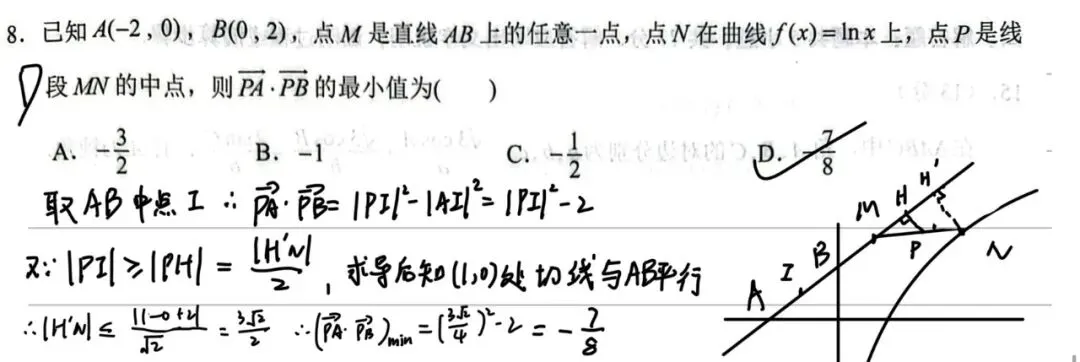 8. 已知 A(-2, 0), B(0, 2), 点 M 是直线 AB 上的任意一点, 点 N 在曲线 f(x)=ln x 上, 点 P 是线
段 MN 的中点, 则 \overrightarrow{PA}·\overrightarrow{PB} 的最小值为( )
A. -\frac{3}{2} B. -1 C. -\frac{1}{2} D. -\frac{7}{8}
取AB中点 I ∴ \overrightarrow{PA}·\overrightarrow{PB}=|PI|²-|AI|²=|PI|²-2
又∵|PI|≥|PH|=\frac{|H'N|}{2}, 求导后知(1,0)处切线与AB平行
∴|H'N|≤\frac{|1-0+2|}{\sqrt{2}}=\frac{3\sqrt{2}}{2} ∴(\overrightarrow{PA}·\overrightarrow{PB})min=(\frac{3\sqrt{2}}{4})²-2=-\frac{7}{8}
H'
H
M
P
N
B
I
A